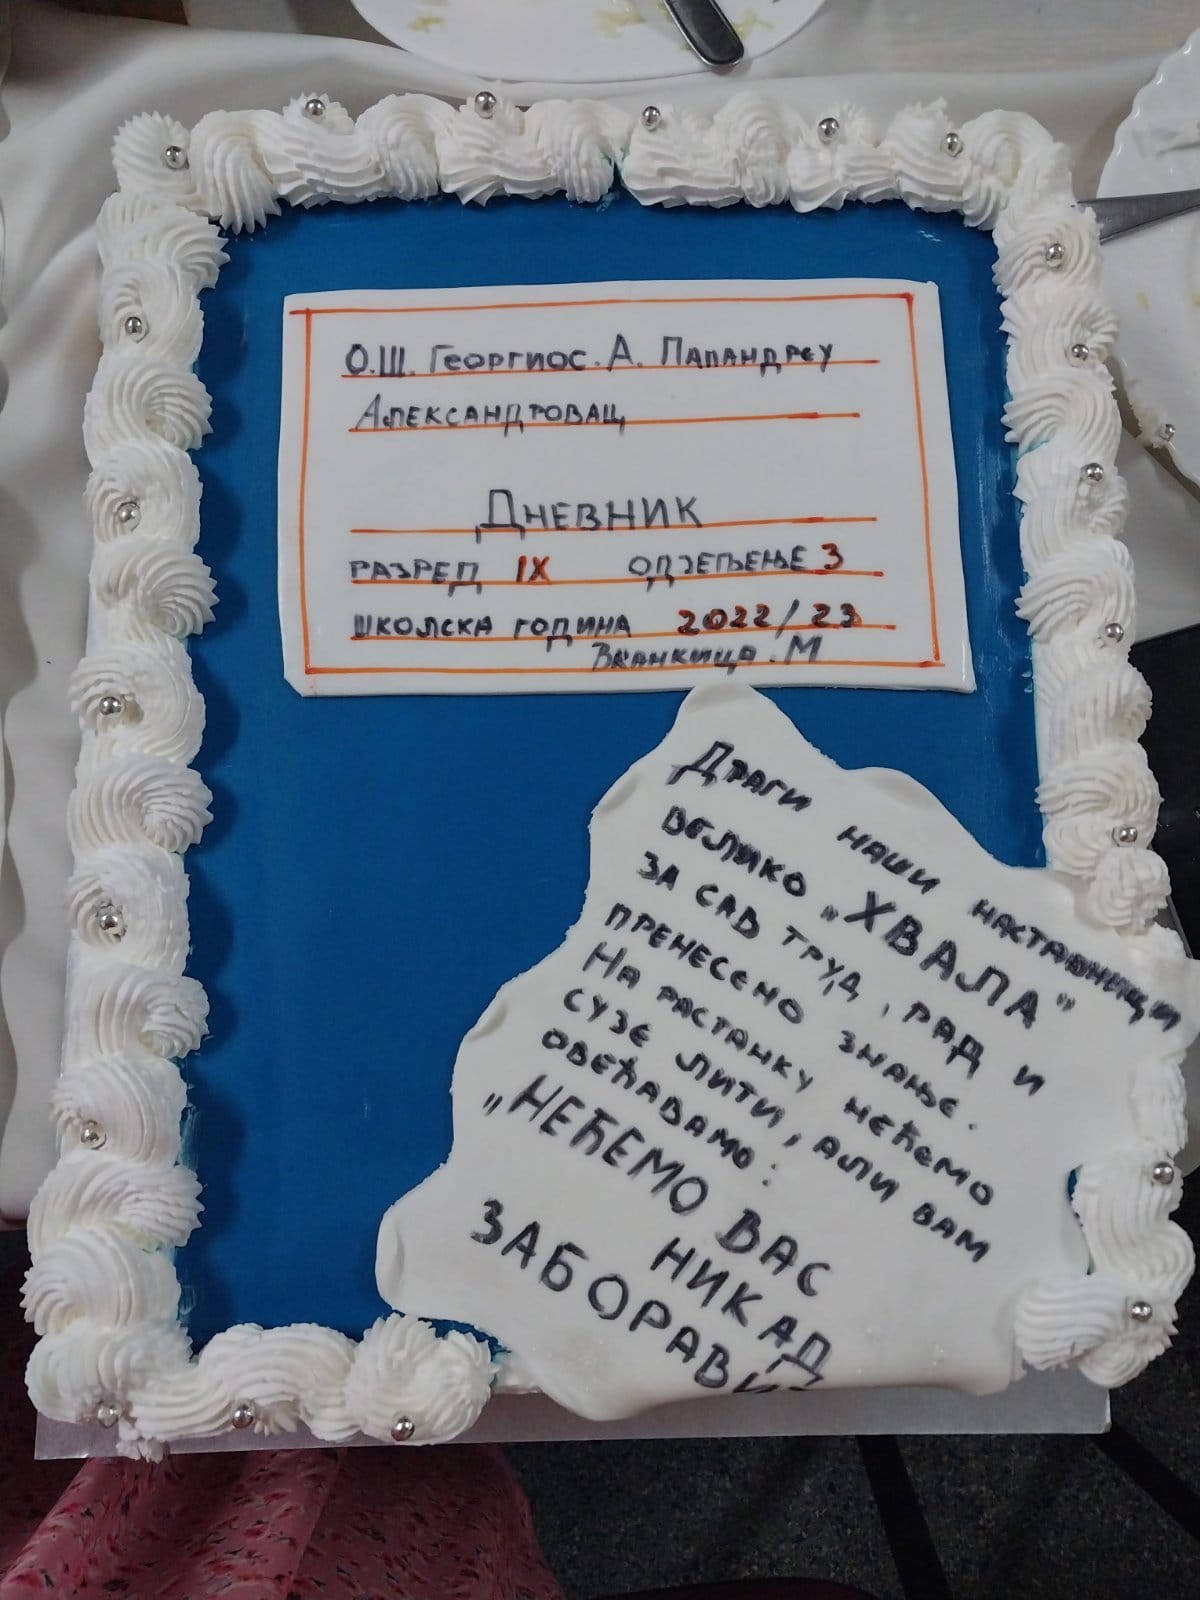 О.Ш. Георгиос.А. Папандреу
Александровац
Дневник
разред IX одјељење 3
школска година 2022/23
Бранкица.М
Драги наши наставници
велико „ХВАЛА"
за сав труд, рад и
пренесено знање.
На растанку нећемо
сузе лити, али вам
обећавамо:
„НЕЋЕМО ВАС
НИКАД
ЗАБОРАВИ